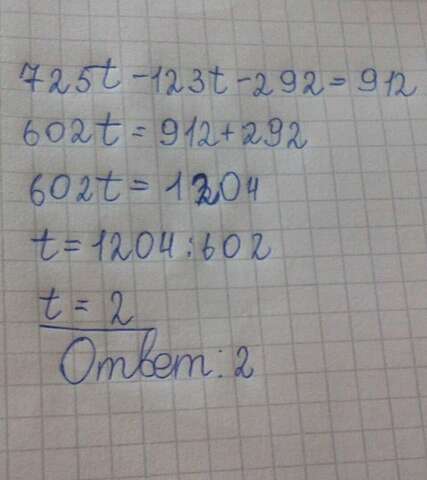 725t - 123t - 292 = 912
602t = 912 + 292
602t = 1204
t = 1204 : 602
t = 2
Ответ: 2